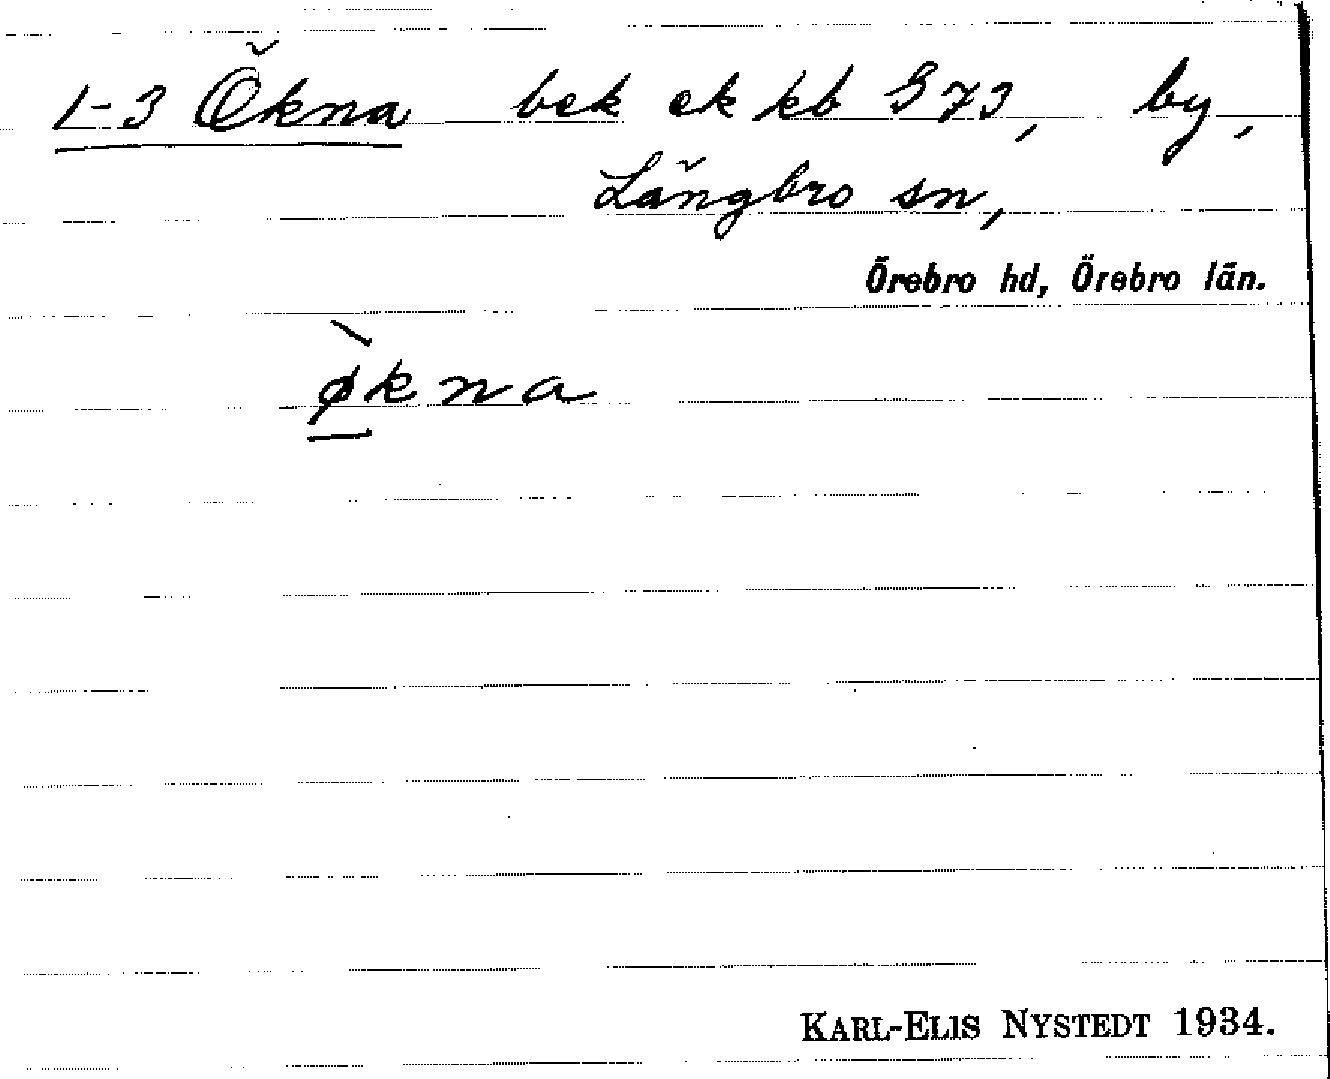 1-3 Ökna bek ek kb S 73, by,
Längbro sn,
Örebro hd, Örebro län.
ø̀kna
KARL-ELIS NYSTEDT 1934.